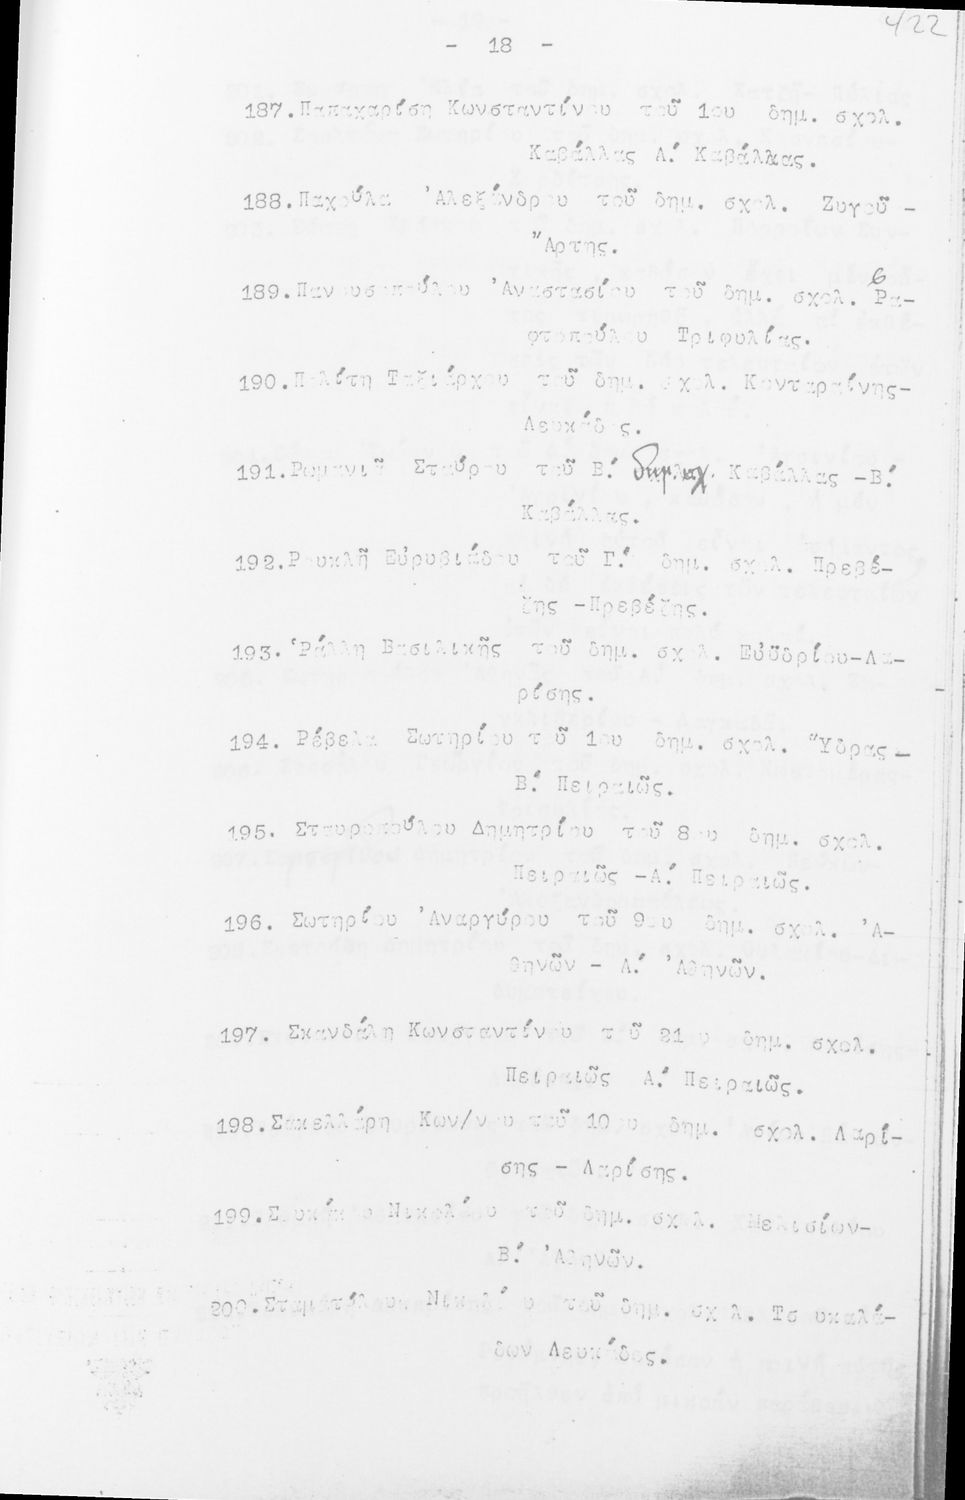 422
- 18 -
187. Παπαχαρίση Κωνσταντίνου τοῦ 1ου δημ. σχολ.
Καβάλλας Α.΄ Καβάλλας.
188. Παχούλα Ἀλεξάνδρου τοῦ δημ. σχολ. Ζυγοῦ -
Ἄρτης.
189. Πανουσοπούλου Ἀναστασίου τοῦ δημ. σχολ. Ρα-
φτοπούλου Τριφυλίας.
190. Πολίτη Ταξιάρχου τοῦ δημ. σχολ. Κονταραίνης-
Λευκάδος.
191. Ρωμανιᾶ Σταύρου τοῦ Β.΄ δημ. σχ. Καβάλλας -Β.΄
Καβάλλας.
192. Ρουκλῆ Εὐρυβιάδου τοῦ Γ.΄ δημ. σχολ. Πρεβέ-
ζης -Πρεβέζης.
193. Ῥάλλη Βασιλικῆς τοῦ δημ. σχολ. Εὐϋδρίου-Λα-
ρίσης.
194. Ρέβελα Σωτηρίου τοῦ 1ου δημ. σχολ. Ὕδρας -
Β.΄ Πειραιῶς.
195. Σταυροπούλου Δημητρίου τοῦ 8ου δημ. σχολ.
Πειραιῶς -Α.΄ Πειραιῶς.
196. Σωτηρίου Ἀναργύρου τοῦ 9ου δημ. σχολ. Ἀ-
θηνῶν - Α.΄ Ἀθηνῶν.
197. Σκανδάλη Κωνσταντίνου τ ῦ 21 υ δημ. σχολ.
Πειραιῶς Α.΄ Πειραιῶς.
198. Σακελλάρη Κων/νου τοῦ 10 υ δημ. σχολ. Λαρί-
σης - Λαρίσης.
199. Σουκάκο Νικολάου τοῦ δημ. σχολ. Μελισίων-
Β.΄ Ἀθηνῶν.
200. Σταματέλου Νικολάου τοῦ δημ. σχ λ. Τσ υκαλά-
δων Λευκάδος.